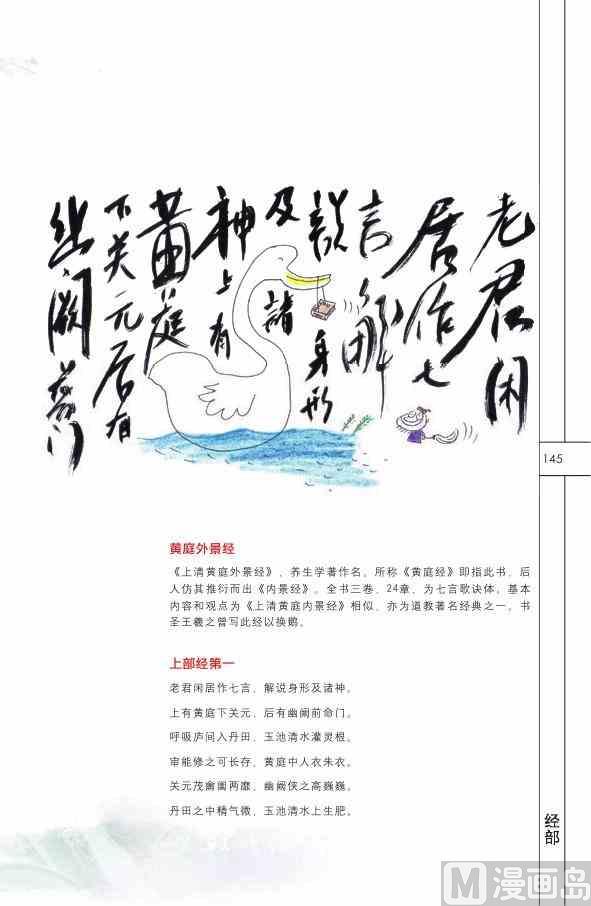 老君闲
居作七
言解
說身形
及諸
神上有
黄庭
下关元后有
幽阙
145
黄庭外景经
《上清黄庭外景经》，养生学著作名。所称《黄庭经》即指此书，后
人仿其推衍而出《内景经》。全书三卷，24章，为七言歌诀体。基本
内容和观点为《上清黄庭内景经》相似，亦为道教著名经典之一，书
圣王羲之曾写此经以换鹅。
上部经第一
老君闲居作七言，解说身形及诸神。
上有黄庭下关元，后有幽阙前命门。
呼吸庐间入丹田，玉池清水灌灵根。
审能修之可长存，黄庭中人衣朱衣。
关元茂龠阖两靡，幽阙侠之高巍巍。
丹田之中精气微，玉池清水上生肥。
经部
M漫画岛